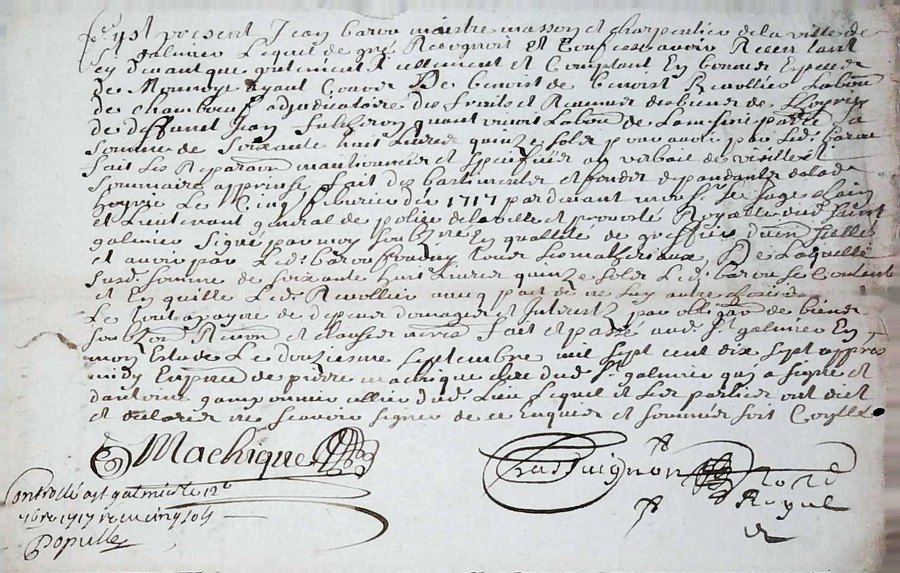 present Jean barou maistre masson et charpentier de la ville de
St galmier Lequel de gré Recognoit Et Confesse avoir Receu tant
cy devant que présentement Réellement et Comptant En bonnes Especes
De Monnoye ayant Cours De benoist Revollier Labour
de chambeuf adjudicataire des fruits et Revenus des biens de
de deffunct Jean vivoit Labour de La
somme de soixante huit Livres quinze sols pour avoir par Led barou
fait Les Reparaon mantionnées et speciffiées au verbail de visitte et
sommaire apprinse fait des bastiments et fonds dependantz de lad
Le Cinq febvrier der 1717 pardevant mons Le sage
et Lieutenant general de police de la ville et prevosté Royalle dud saint
galmier signé par moy soubzné En quallité de greffier
et avoir par Led barou fourny tous Les matheriaux, De Laquelle
susd somme de soixante huit Livres quinze sols Led barou se Contente
et En quitte Led Revollier avec pact de ne Luy
Le tout a payne de depens domages et Interestz par obligaon de biens
soubzon Renon et clauses Fait et passé aud St galmier En
mon Estude Le douziesme septembre mil sept cent dix sept appres
midy En prnce de pierre machique clerc dud St galmier qui a signé et
dantoine dud Lieu Lequel et Les parties ont dict
et déclarer ne scavoir signer de ce Enquis et sommés soit Corllé
Machique
Controllé a St galmier le 12e
7bre 1717 receu cinq sols
Populle
Note
Royal